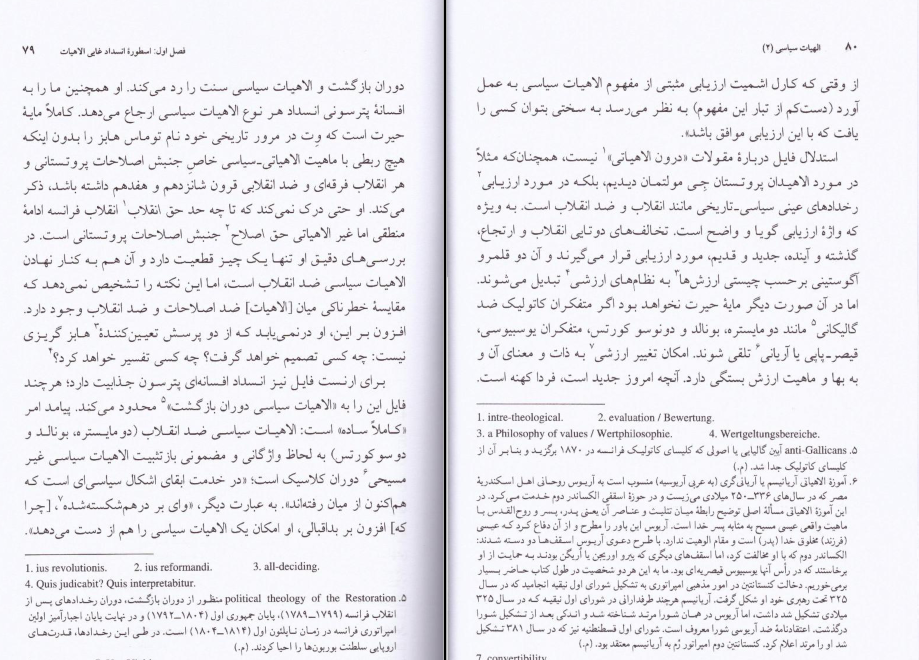 فصل اول: اسطورهٔ انسداد غایی الاهیات ۷۹
دوران بازگشت و الاهیات سیاسی سنت را رد می‌کند. او همچنین ما را به
افسانهٔ پترسونی انسداد هر نوع الاهیات سیاسی ارجاع می‌دهد. کاملاً مایهٔ
حیرت است که وِت در مرور تاریخی خود نام توماس هابز را بدون اینکه
هیچ ربطی با ماهیت الاهیاتی-سیاسی خاصِ جنبش اصلاحات پروتستانی و
هر انقلاب فرقه‌ای و ضد انقلابی قرون شانزدهم و هفدهم داشته باشد، ذکر
می‌کند. او حتی درک نمی‌کند که تا چه حد حق انقلاب۱ انقلاب فرانسه ادامهٔ
منطقی اما غیر الاهیاتی حق اصلاح۲ جنبش اصلاحات پروتستانی است. در
بررسی‌های دقیق او تنها یک چیز قطعیت دارد و آن هم به کنار نهادن
الاهیات سیاسی ضد انقلاب است، اما این نکته را تشخیص نمی‌دهد که
مقایسهٔ خطرناکی میان [الاهیات] ضد اصلاحات و ضد انقلاب وجود دارد.
افزون بر این، او درنمی‌یابد که از دو پرسش تعیین‌کنندهٔ۳ هابز گریزی
نیست: چه کسی تصمیم خواهد گرفت؟ چه کسی تفسیر خواهد کرد؟۴
برای ارنست فایل نیز انسداد افسانه‌ای پترسون جذابیت دارد؛ هرچند
فایل این را به «الاهیات سیاسی دوران بازگشت»۵ محدود می‌کند. پیامد امر
«کاملاً ساده» است: الاهیات سیاسی ضد انقلاب (دو مایستره، بونالد و
دوسو کورتس) به لحاظ واژگانی و مضمونی بازتثبیت الاهیات سیاسی غیر
مسیحی۶ دوران کلاسیک است؛ «در خدمت ابقای اشکال سیاسی‌ای است که
هم‌اکنون از میان رفته‌اند». به عبارت دیگر، «وای بر درهم‌شکسته‌شده۷، [چرا
که] افزون بر بداقبالی، او امکان یک الاهیات سیاسی را هم از دست می‌دهد».
1. ius revolutionis. 2. ius reformandi. 3. all-deciding.
4. Quis judicabit? Quis interpretabitur.
۵. political theology of the Restoration منظور از دوران بازگشت، دوران رخدادهای پس از
انقلاب فرانسه (۱۷۹۹ـ۱۷۸۹)، پایان جمهوری اول (۱۸۰۴ـ۱۷۹۲) و در نهایت پایان اجبارآمیز اولین
امپراتوری فرانسه در زمان ناپلئون اول (۱۸۱۴ـ۱۸۰۴) است. در طی این رخدادها، قدرت‌های
اروپایی سلطنت بوربون‌ها را احیا کردند. (م.)
۸۰ الهیات سیاسی (۲)
از وقتی که کارل اشمیت ارزیابی مثبتی از مفهوم الاهیات سیاسی به عمل
آورد (دست‌کم از تبار این مفهوم) به نظر می‌رسد به سختی بتوان کسی را
یافت که با این ارزیابی موافق باشد».
استدلال فایل دربارهٔ مقولات «درون الاهیاتی»۱ نیست، همچنان‌که مثلاً
در مورد الاهیدان پروتستان جِی مولتمان دیدیم، بلکه در مورد ارزیابی۲
رخدادهای عینی سیاسی-تاریخی مانند انقلاب و ضد انقلاب است. به ویژه
که واژهٔ ارزیابی گویا و واضح است. تخالف‌های دوتایی انقلاب و ارتجاع،
گذشته و آینده، جدید و قدیم، مورد ارزیابی قرار می‌گیرند و آن دو قلمرو
آگوستینی برحسب چیستی ارزش‌ها۳ به نظام‌های ارزشی۴ تبدیل می‌شوند.
اما در آن صورت دیگر مایهٔ حیرت نخواهد بود اگر متفکران کاتولیک ضد
گالیکانی۵ مانند دو مایستره، بونالد و دونوسو کورتس، متفکران یوسبیوسی،
قیصر-پاپی یا آریانی۶ تلقی شوند. امکان تغییر ارزشی۷ به ذات و معنای آن و
به بها و ماهیت ارزش بستگی دارد. آنچه امروز جدید است، فردا کهنه است.
1. intre-theological. 2. evaluation / Bewertung.
3. a Philosophy of values / Wertphilosophie. 4. Wertgeltungsbereiche.
۵. anti-Gallicans آیین گالیایی یا اصولی که کلیسای کاتولیک فرانسه در ۱۸۷۰ برگزید و بنابر آن از
کلیسای کاتولیک جدا شد. (م.)
۶. آموزهٔ الاهیاتی آریانیسم یا آریانی‌گری (به عربی آریوسیه) منسوب است به آریوس روحانی اهل اسکندریهٔ
مصر که در سال‌های ۳۳۶ـ۲۵۰ میلادی می‌زیست و در حوزهٔ اسقفی الکساندر دوم خدمت می‌کرد. در
این آموزهٔ الاهیاتی مسألهٔ اصلی توضیح رابطهٔ میان تثلیث و عناصر آن یعنی پدر، پسر و روح‌القدس با
ماهیت واقعی عیسی مسیح به مثابه پسر خدا است. آریوس این باور را مطرح و از آن دفاع کرد که عیسی
(فرزند) مخلوق خدا (پدر) است و مقام الوهیت ندارد. با طرح دعوی آریوس اسقف‌ها دو دسته شدند:
الکساندر دوم که با او مخالفت کرد، اما اسقف‌های دیگری که پیرو اوریجن یا اُریگن بودند به حمایت از او
برخاستند که در رأس آنها یوسبیوس قیصریه‌ای بود. ما به این هر دو شخصیت در طول کتاب حاضر بسیار
برمی‌خوریم. دخالت کنستانتین در امور مذهبی امپراتوری به تشکیل شورای اول نیقیه انجامید که در سال
۳۲۵ تحت رهبری خود او شکل گرفت. آریانیسم هرچند طرفدارانی در شورای اول نیقیه که در سال ۳۲۵
میلادی تشکیل شد داشت، اما آریوس در همان شورا مرتد شناخته شد و اندکی بعد از تشکیل شورا
درگذشت. اعتقادنامهٔ ضد آریوسی شورا معروف است. شورای اول قسطنطنیه نیز که در سال ۳۸۱ تشکیل
شد او را مرتد اعلام کرد. کنستانتین دوم امپراتور رُم به آریانیسم معتقد بود. (م.)
7. convertibility